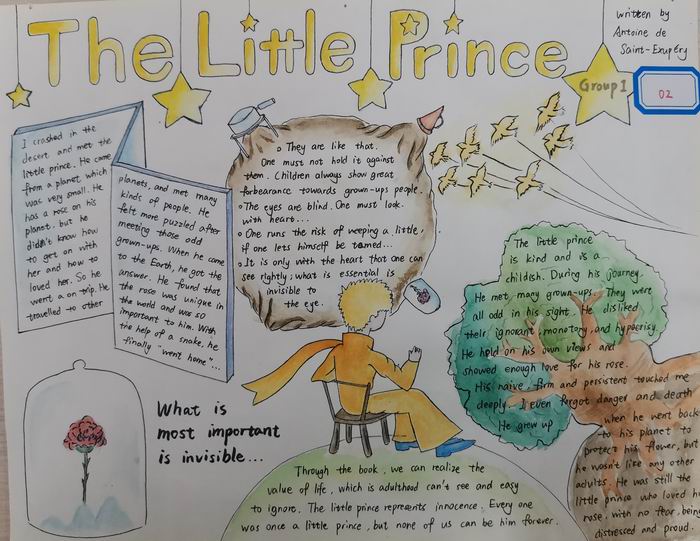 The Little Prince
written by
Antoine de
Saint-Exupéry
Group 1
02
I crashed in the
desert and met the
little prince. He came
from a planet which
was very small. He
has a rose on his
planet. but he
didn't know how
to get on with
her and how to
loved her. So he
went a on trip. He
travelled to other
planets, and met many
kinds of people. He
felt more puzzled after
meeting those odd
grown-ups. When he came
to the Earth, he got the
answer. He found that
the rose was unique in
the world and was so
important to him. With
the help of a snake, he
finally "went home"...
They are like that.
One must not hold it against
them. Children always show great
forbearance towards grown-ups people.
The eyes are blind. One must look
with heart...
One runs the risk of weeping a little,
if one lets himself be tamed...
It is only with the heart that one can
see rightly; what is essential is
invisible to
the eye.
The little prince
is kind and is a
childish. During his journey.
He met many grown-ups. They were
all odd in his sight. He disliked
their ignorant, monotony, and hypocrisy.
He hold on his own views and
showed enough love for his rose.
His naive, firm and persistent touched me
deeply. I even forgot danger and death
He grew up
when he went back
to his planet to
protect his flower, but
he wasn't like any other
adults. He was still the
little prince who loved his
rose, with no fear, being
distressed and proud.
What is
most important
is invisible...
Through the book, we can realize the
value of life, which is adulthood can't see and easy
to ignore. The little prince represents innocence. Every one
was once a little prince, but none of us can be him forever.